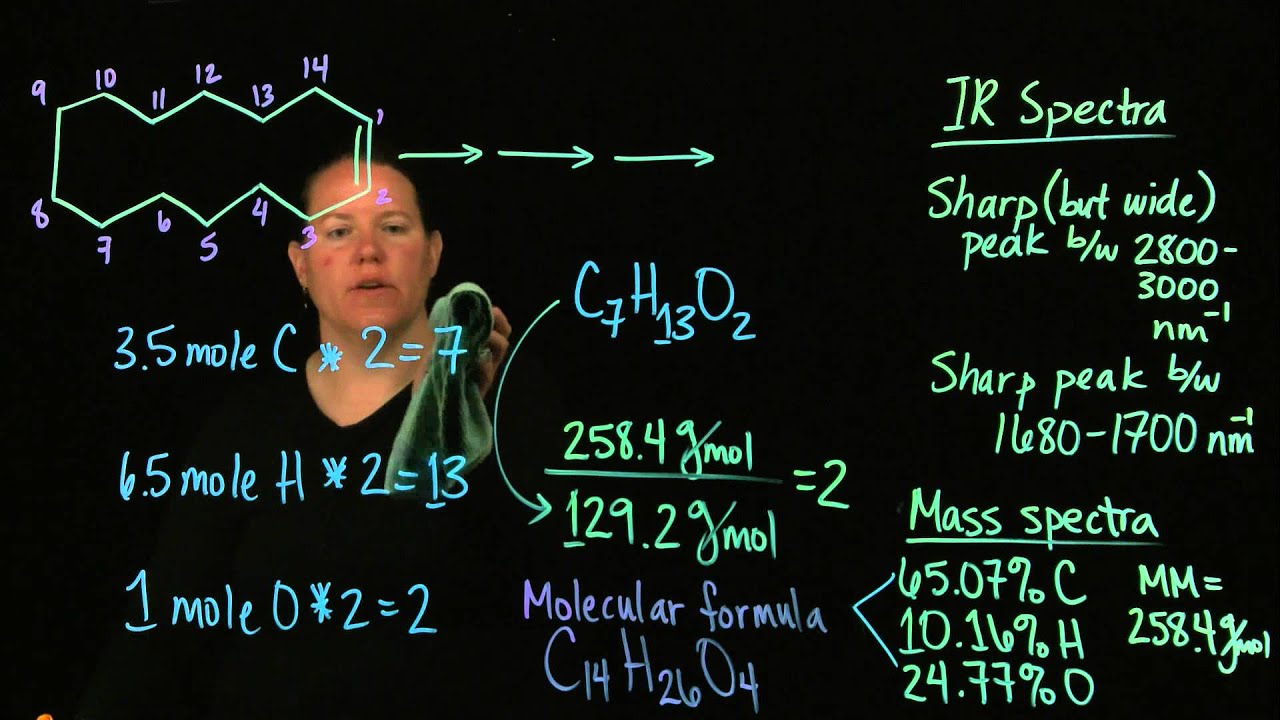 9 10 11 12 13 14 1
8 7 6 5 4 3 2
3.5 mole C * 2 = 7
6.5 mole H * 2 = 13
1 mole O * 2 = 2
C7H13O2
258.4 g/mol
129.2 g/mol
= 2
Molecular formula
C14H26O4
IR Spectra
Sharp (but wide)
peak b/w 2800-
3000
nm-1
Sharp peak b/w
1680-1700 nm-1
Mass spectra
65.07% C
10.16% H
24.77% O
MM =
258.4 g/mol